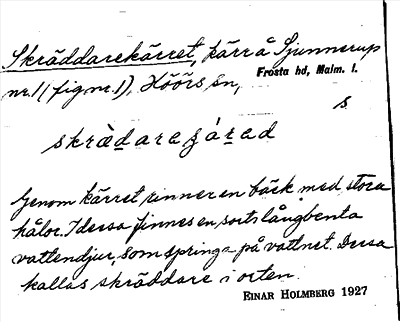 Skräddarekärret, kärr å Sjunnerup
nr 1 (fig nr. 1), Höörs sn,
Frosta hd, Malm. l.
s
Genom kärret rinner en bäck med stora
hålor. I dessa finnes en sorts långbenta
vattendjur, som springa på vattnet. Dessa
kallas skräddare i orten.
EINAR HOLMBERG 1927